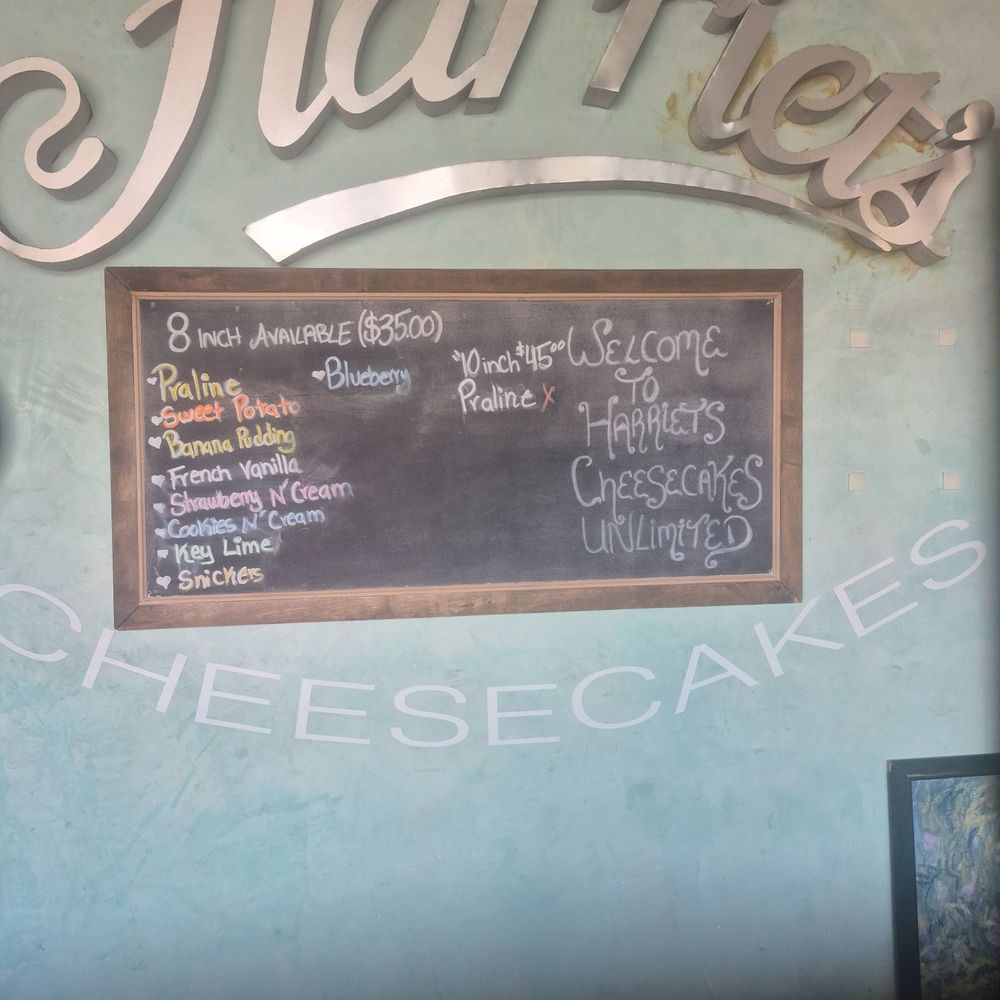 Harriet's
8 INCH AVAILABLE ($35.00)
Praline
Sweet Potato
Banana Pudding
French Vanilla
Strawberry N' Cream
Cookies N' Cream
Key Lime
Snickers
Blueberry
10 inch $45.00
Praline X
WELCOME
TO
HARRIETS
CHEESECAKES
UNLIMITED
CHEESECAKES